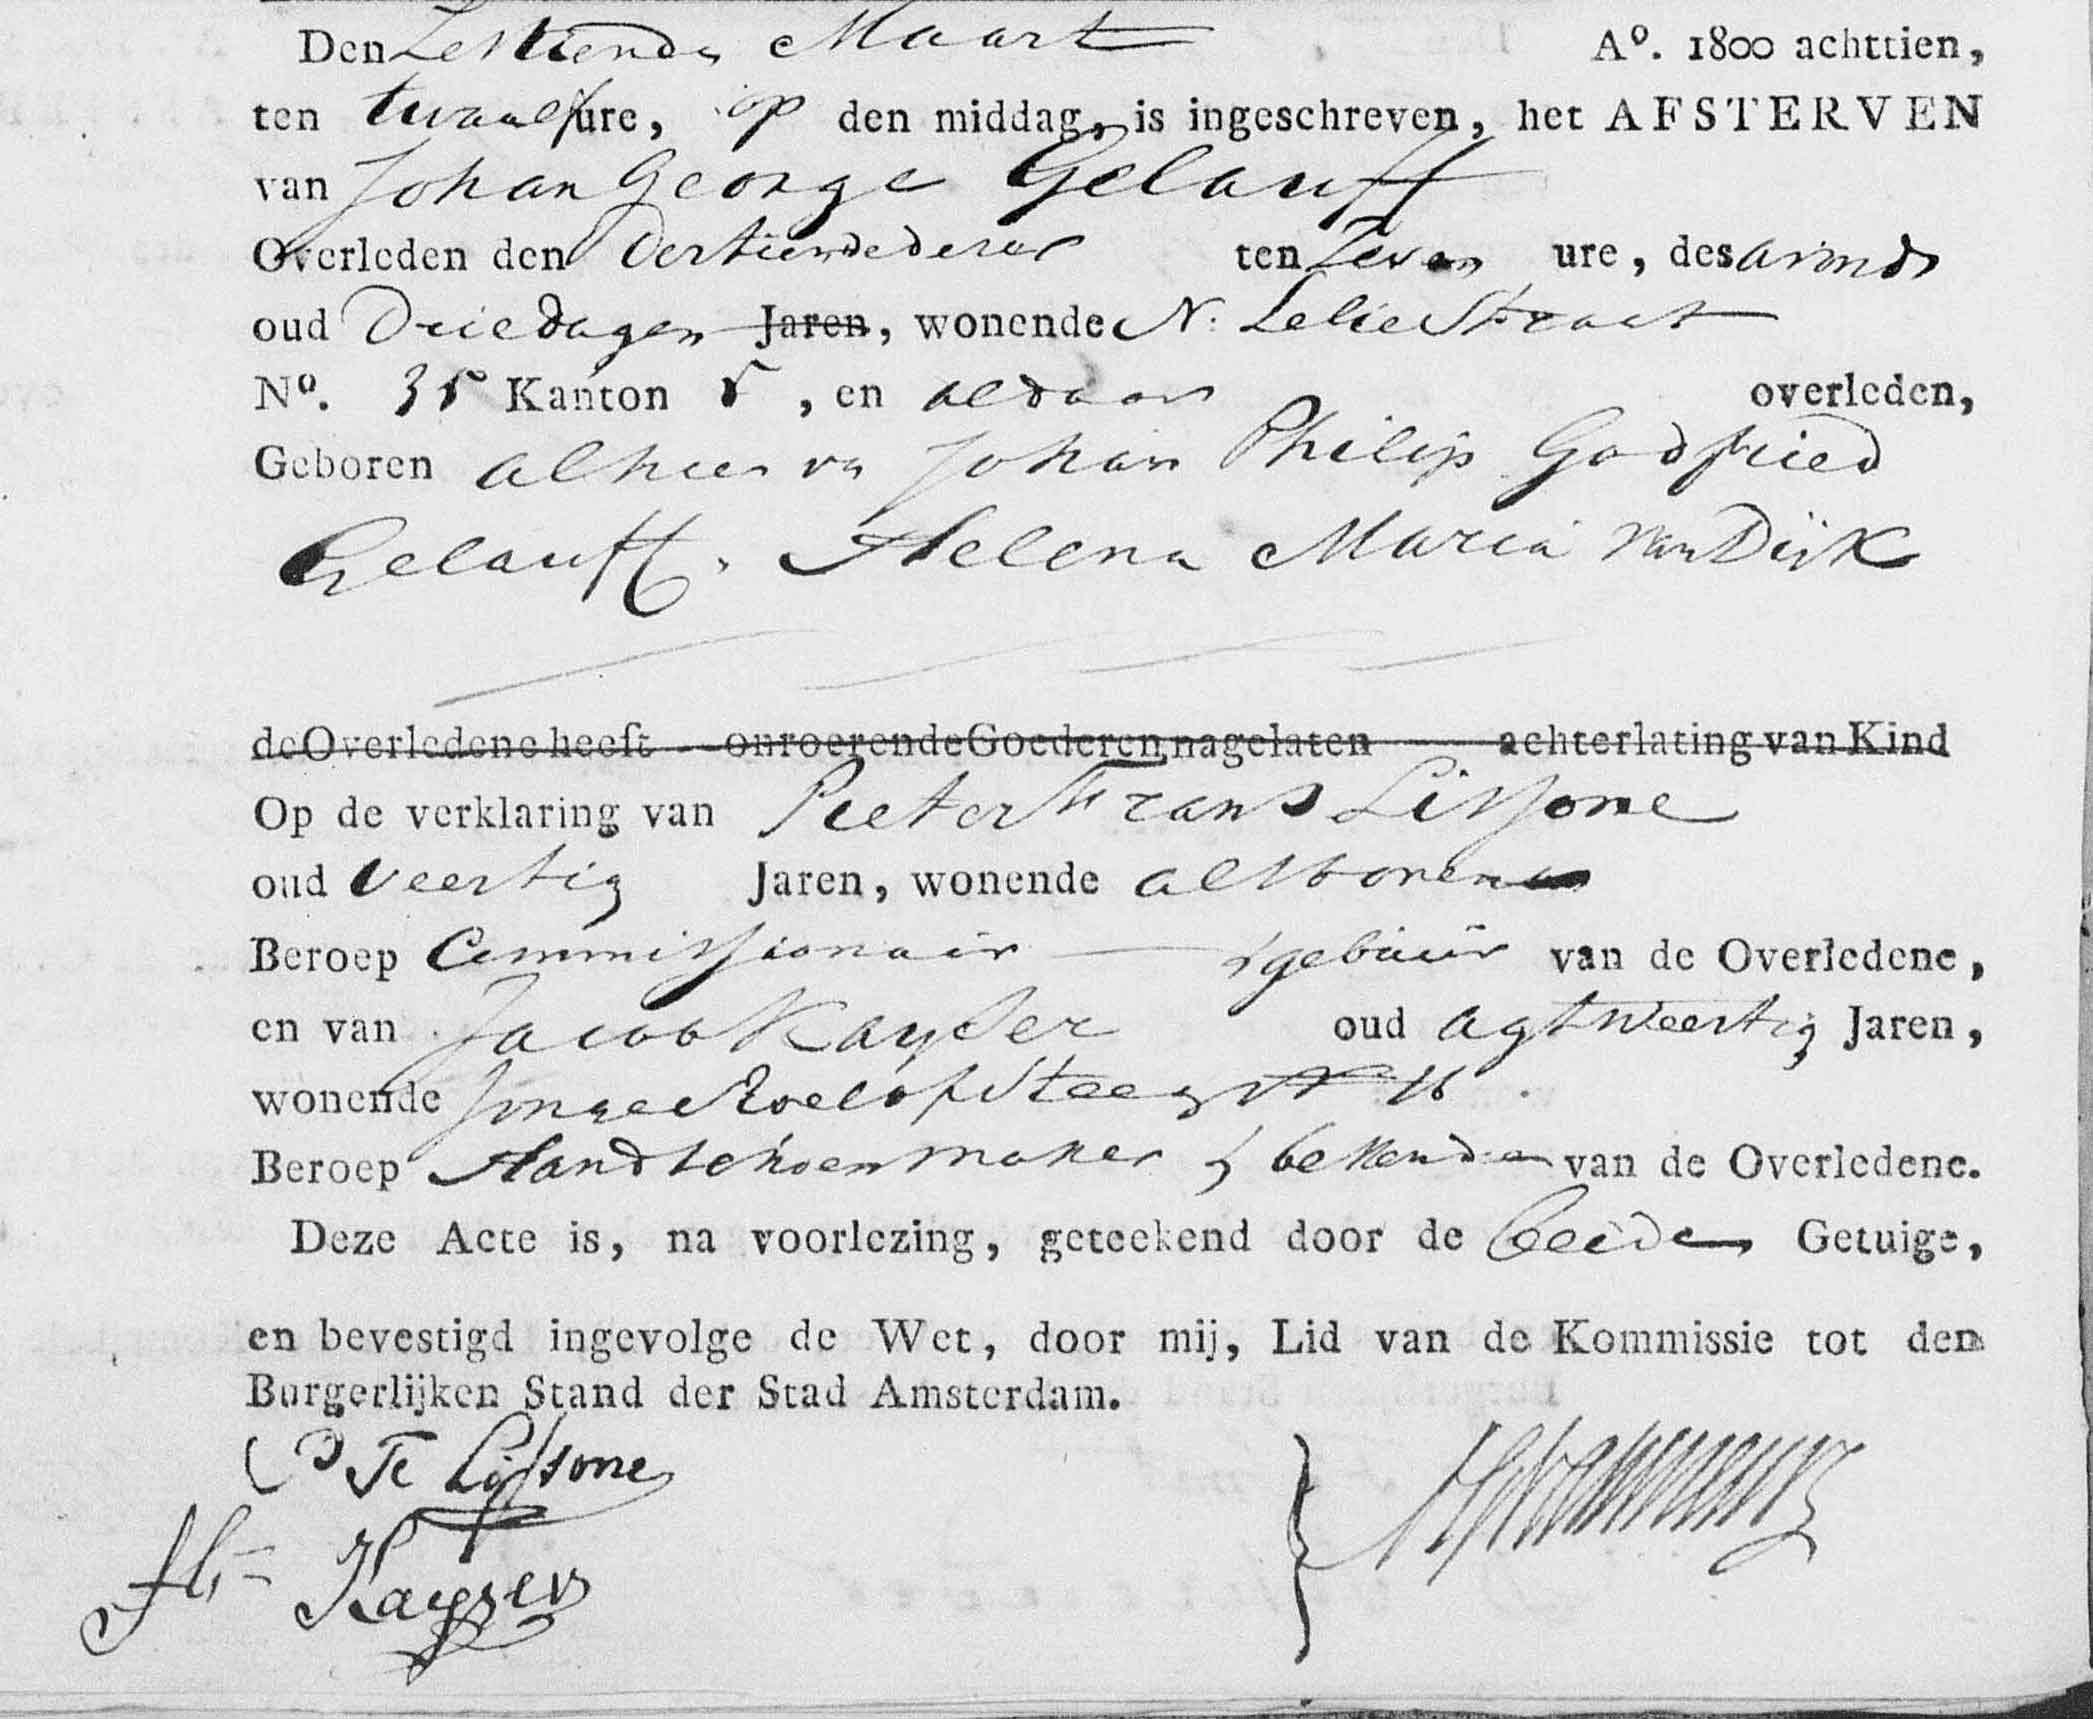 Den Zestiende Maart A⁰. 1800 achttien,
ten twaalf ure, op den middag, is ingeschreven, het AFSTERVEN
van Johan George Gelauff
Overleden den Dertiende dezer ten Zeven ure, des avonds
oud Drie dagen Jaren, wonende N: Leliestraat
N⁰. 35 Kanton 5, en aldaar overleden,
Geboren alhier vn Johan Philip Godfried
Gelauff. Helena Maria van Dijk
de Overledene heeft onroerende Goederen nagelaten achterlating van Kind
Op de verklaring van Pieter Frans Lissone
oud veertig Jaren, wonende
Beroep Commissionair gebuur van de Overledene,
en van Jacob Kayser oud agtveertig Jaren,
wonende Jonge Roelofsteeg N 16
Beroep Handschoenmaker, bekende van de Overledene.
Deze Acte is, na voorlezing, geteekend door de beide Getuige,
en bevestigd ingevolge de Wet, door mij, Lid van de Kommissie tot den
Burgerlijken Stand der Stad Amsterdam.
P Fc Lissone
Kayser